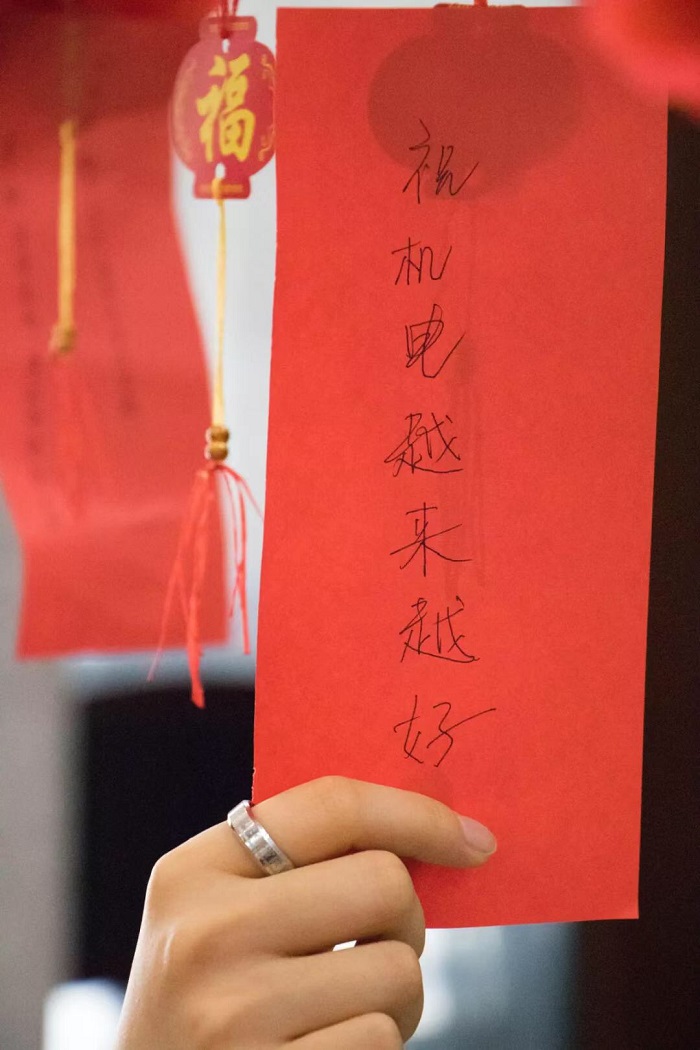 福
祝机电越来越好